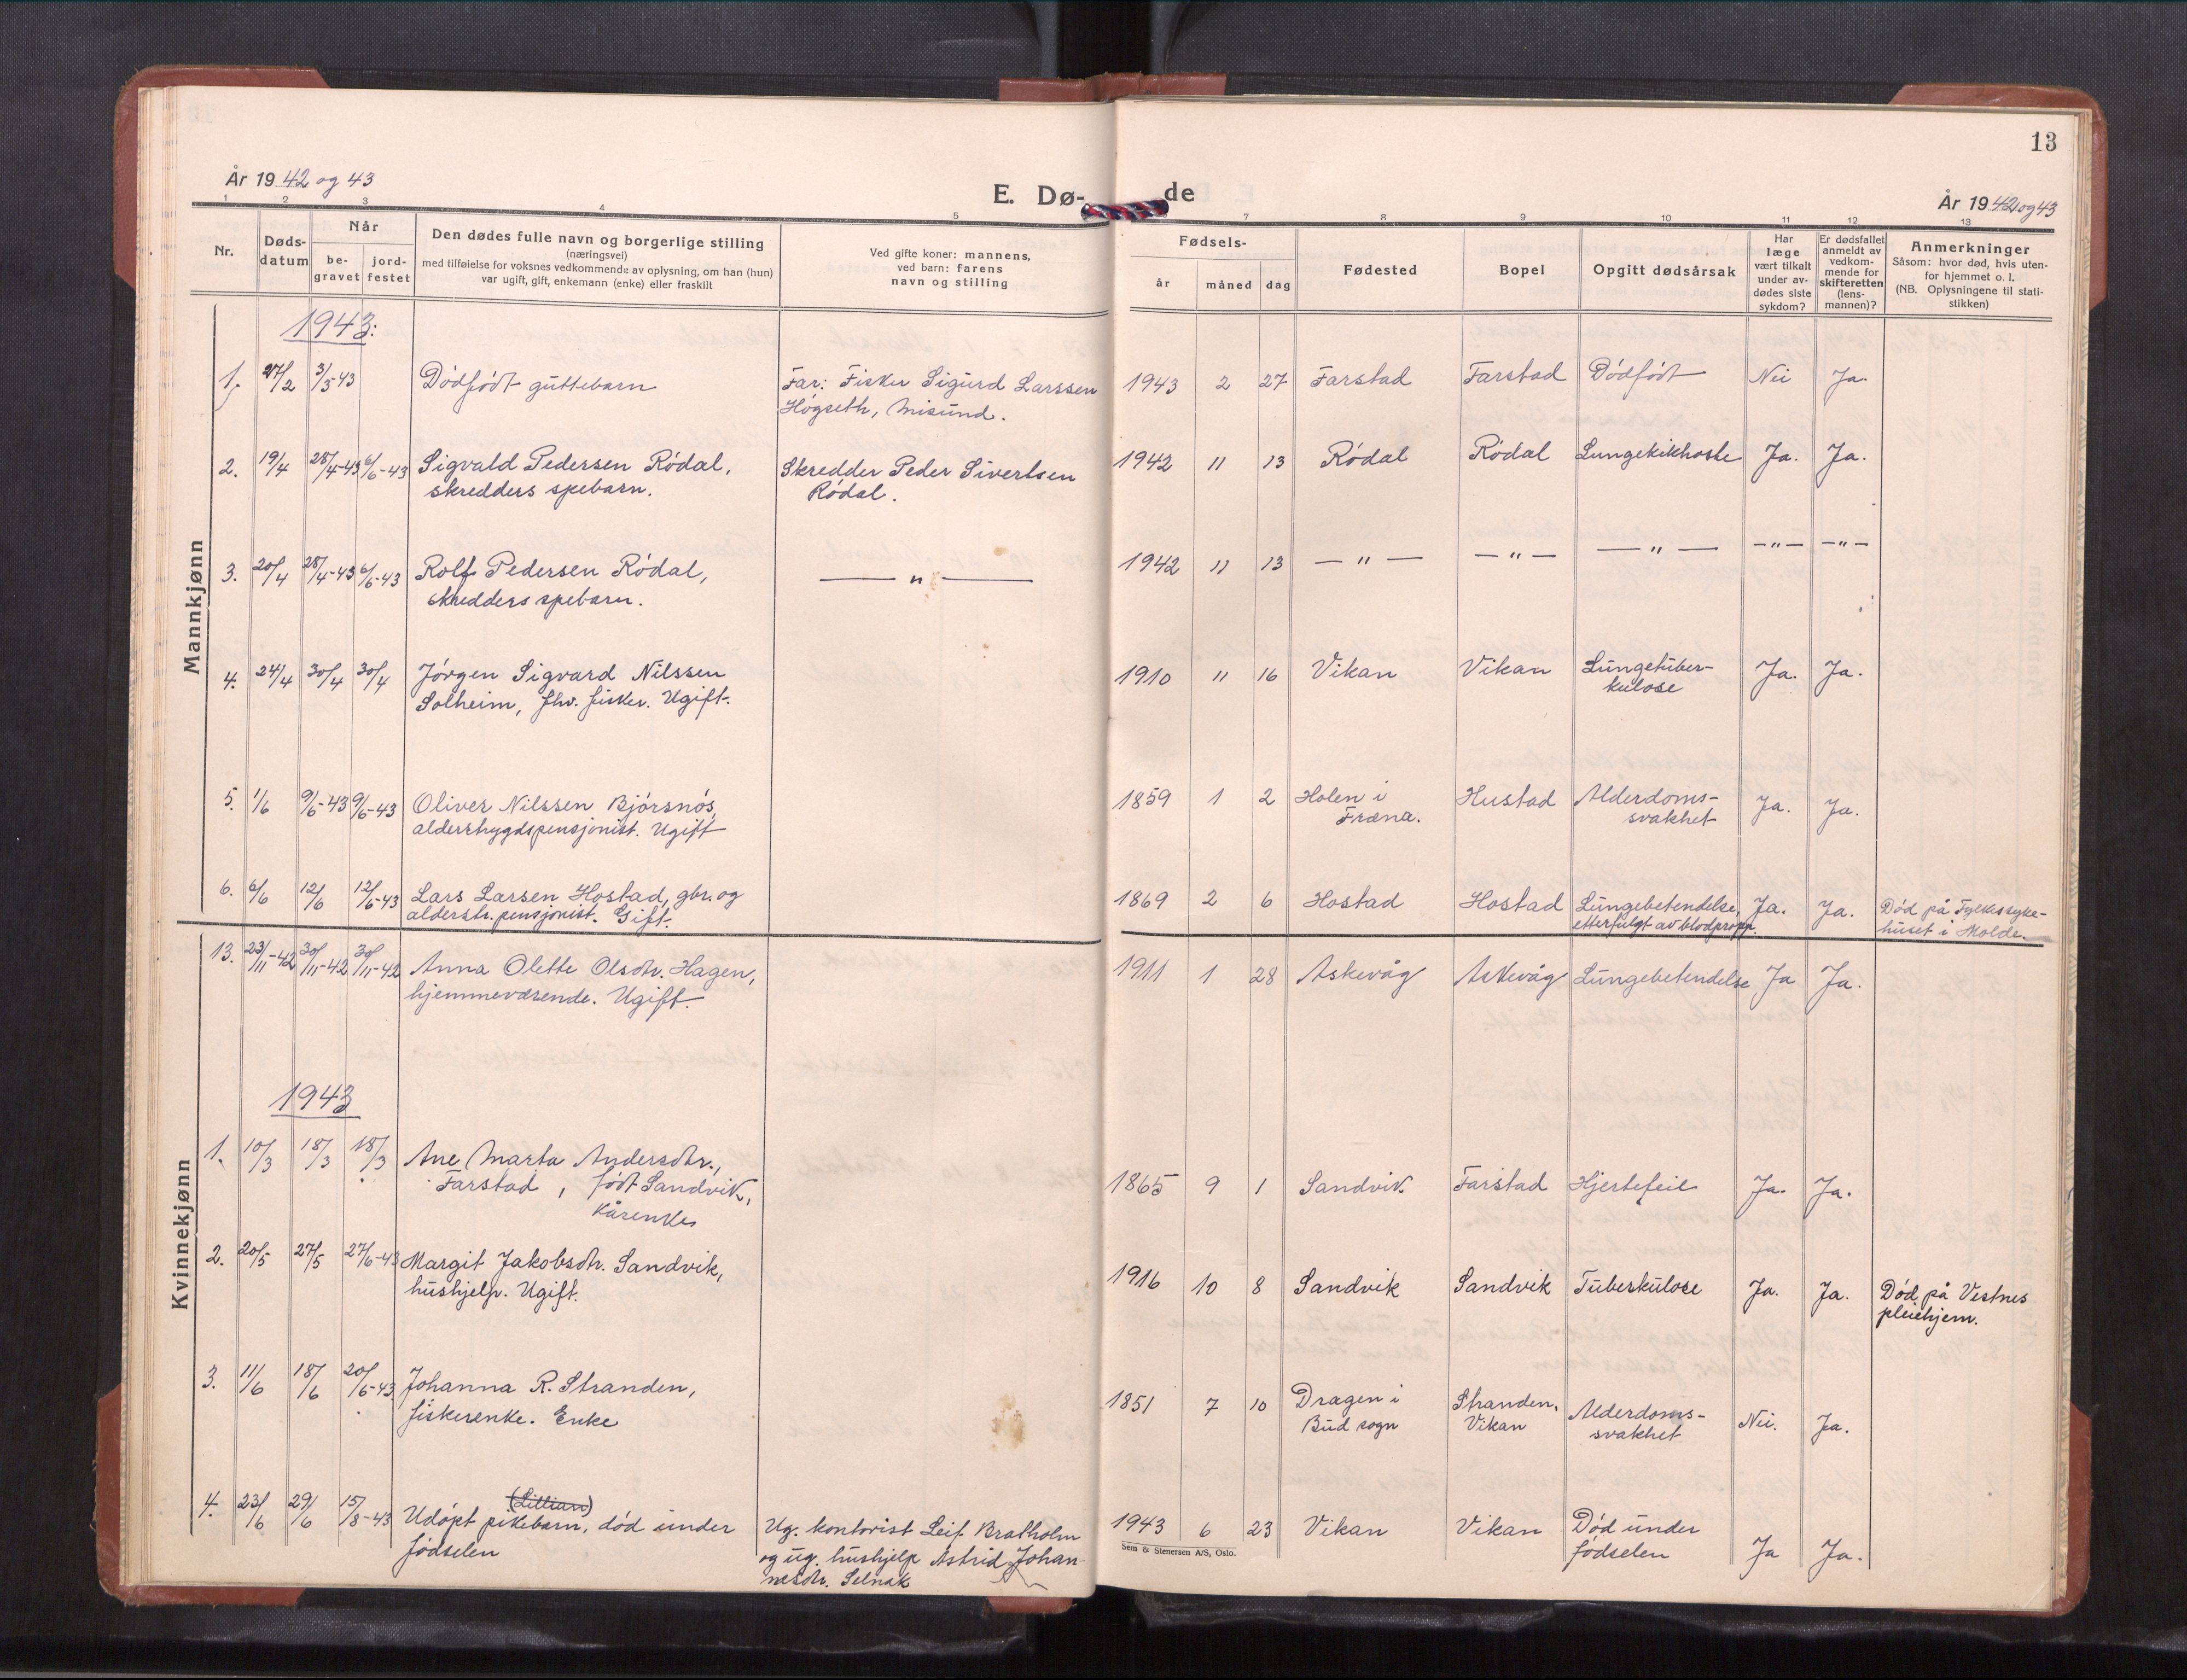 13
År 1942 og 43
E. Dø-
de
År 1942 og 43
1 2 3 4 5
7 8 9 10 11 12 13
Nr.
Døds-
datum
Når
be-
gravet
jord-
festet
Den dødes fulle navn og borgerlige stilling
(næringsvei)
med tilføielse for voksnes vedkommende av oplysning, om han (hun)
var ugift, gift, enkemann (enke) eller fraskilt
Ved gifte koner: mannens,
ved barn: farens
navn og stilling
Fødsels-
år måned dag
Fødested
Bopel
Opgitt dødsårsak
Har
læge
vært tilkalt
under av-
dødes siste
sykdom?
Er dødsfallet
anmeldt av
vedkom-
mende for
skifteretten
(lens-
mannen)?
Anmerkninger
Såsom: hvor død, hvis uten-
for hjemmet o. l.
(NB. Oplysningene til stati-
stikken)
Mannkjønn
1943:
1. 27/2 3/5-43 Dødfødt guttebarn Far: Fisker Sigurd Larssen 1943 2 27 Farstad Farstad Dødfødt Nei Ja.
Høgseth, Misund.
2. 19/4 28/4-43 6/6-43 Sigvald Pedersen Rødal, Skredder Peder Sivertsen 1942 11 13 Rødal Rødal Lungekikhoste Ja. Ja.
skredders spebarn. Rødal.
3. 20/4 28/4-43 6/6-43 Rolf Pedersen Rødal, — " — 1942 11 13 — " — — " — — " — — " — — " —
skredders spebarn.
4. 24/4 30/4 30/4 Jørgen Sigvard Nilssen 1910 11 16 Vikan Vikan Lungetuber- Ja. Ja.
Solheim, fhv. fisker. Ugift. kulose
5. 1/6 9/6-43 9/6-43 Oliver Nilssen Bjørsnøs, 1859 1 2 Holen i Hustad Alderdoms- Ja. Ja.
alderstrygdspensjonist. Ugift Fræna. svakhet
6. 6/6 12/6 12/6-43 Lars Larsen Hostad, gbr. og 1869 2 6 Hostad Hostad Lungebetendelse, Ja. Ja. Død på Fylkessyke-
alderstr. pensjonist. Gift. etterfulgt av blodpropp. huset i Molde.
Kvinnekjønn
13. 23/11-42 30/11-42 30/11-42 Anna Olette Olsdtr. Hagen, 1911 1 28 Askevåg Askevåg Lungebetendelse Ja Ja.
hjemmeværende. Ugift.
1943
1. 10/3 18/3 18/3 Ane Marta Andersdtr., 1865 9 1 Sandvik. Farstad Hjertefeil Ja. Ja.
Farstad, født Sandvik,
kårenke
2. 20/5 27/5 27/6-43 Margit Jakobsdtr. Sandvik, 1916 10 8 Sandvik Sandvik Tuberkulose Ja. Ja. Død på Vestnes
hushjelp. Ugift. pleiehjem.
3. 11/6 18/6 20/6-43 Johanna R. Stranden, 1851 7 10 Dragen i Stranden, Alderdoms- Nei. Ja.
fiskerenke. Enke Bud sogn Vikan svakhet
(Lillian)
4. 23/6 29/6 15/8-43 Udøpt pikebarn, død under Ug. kontorist Leif Bratholm 1943 6 23 Vikan Vikan Død under Ja Ja.
fødselen og ug. hushjelp Astrid Johan- fødselen
nesdtr. Selnak
Sem & Stenersen A/S, Oslo.